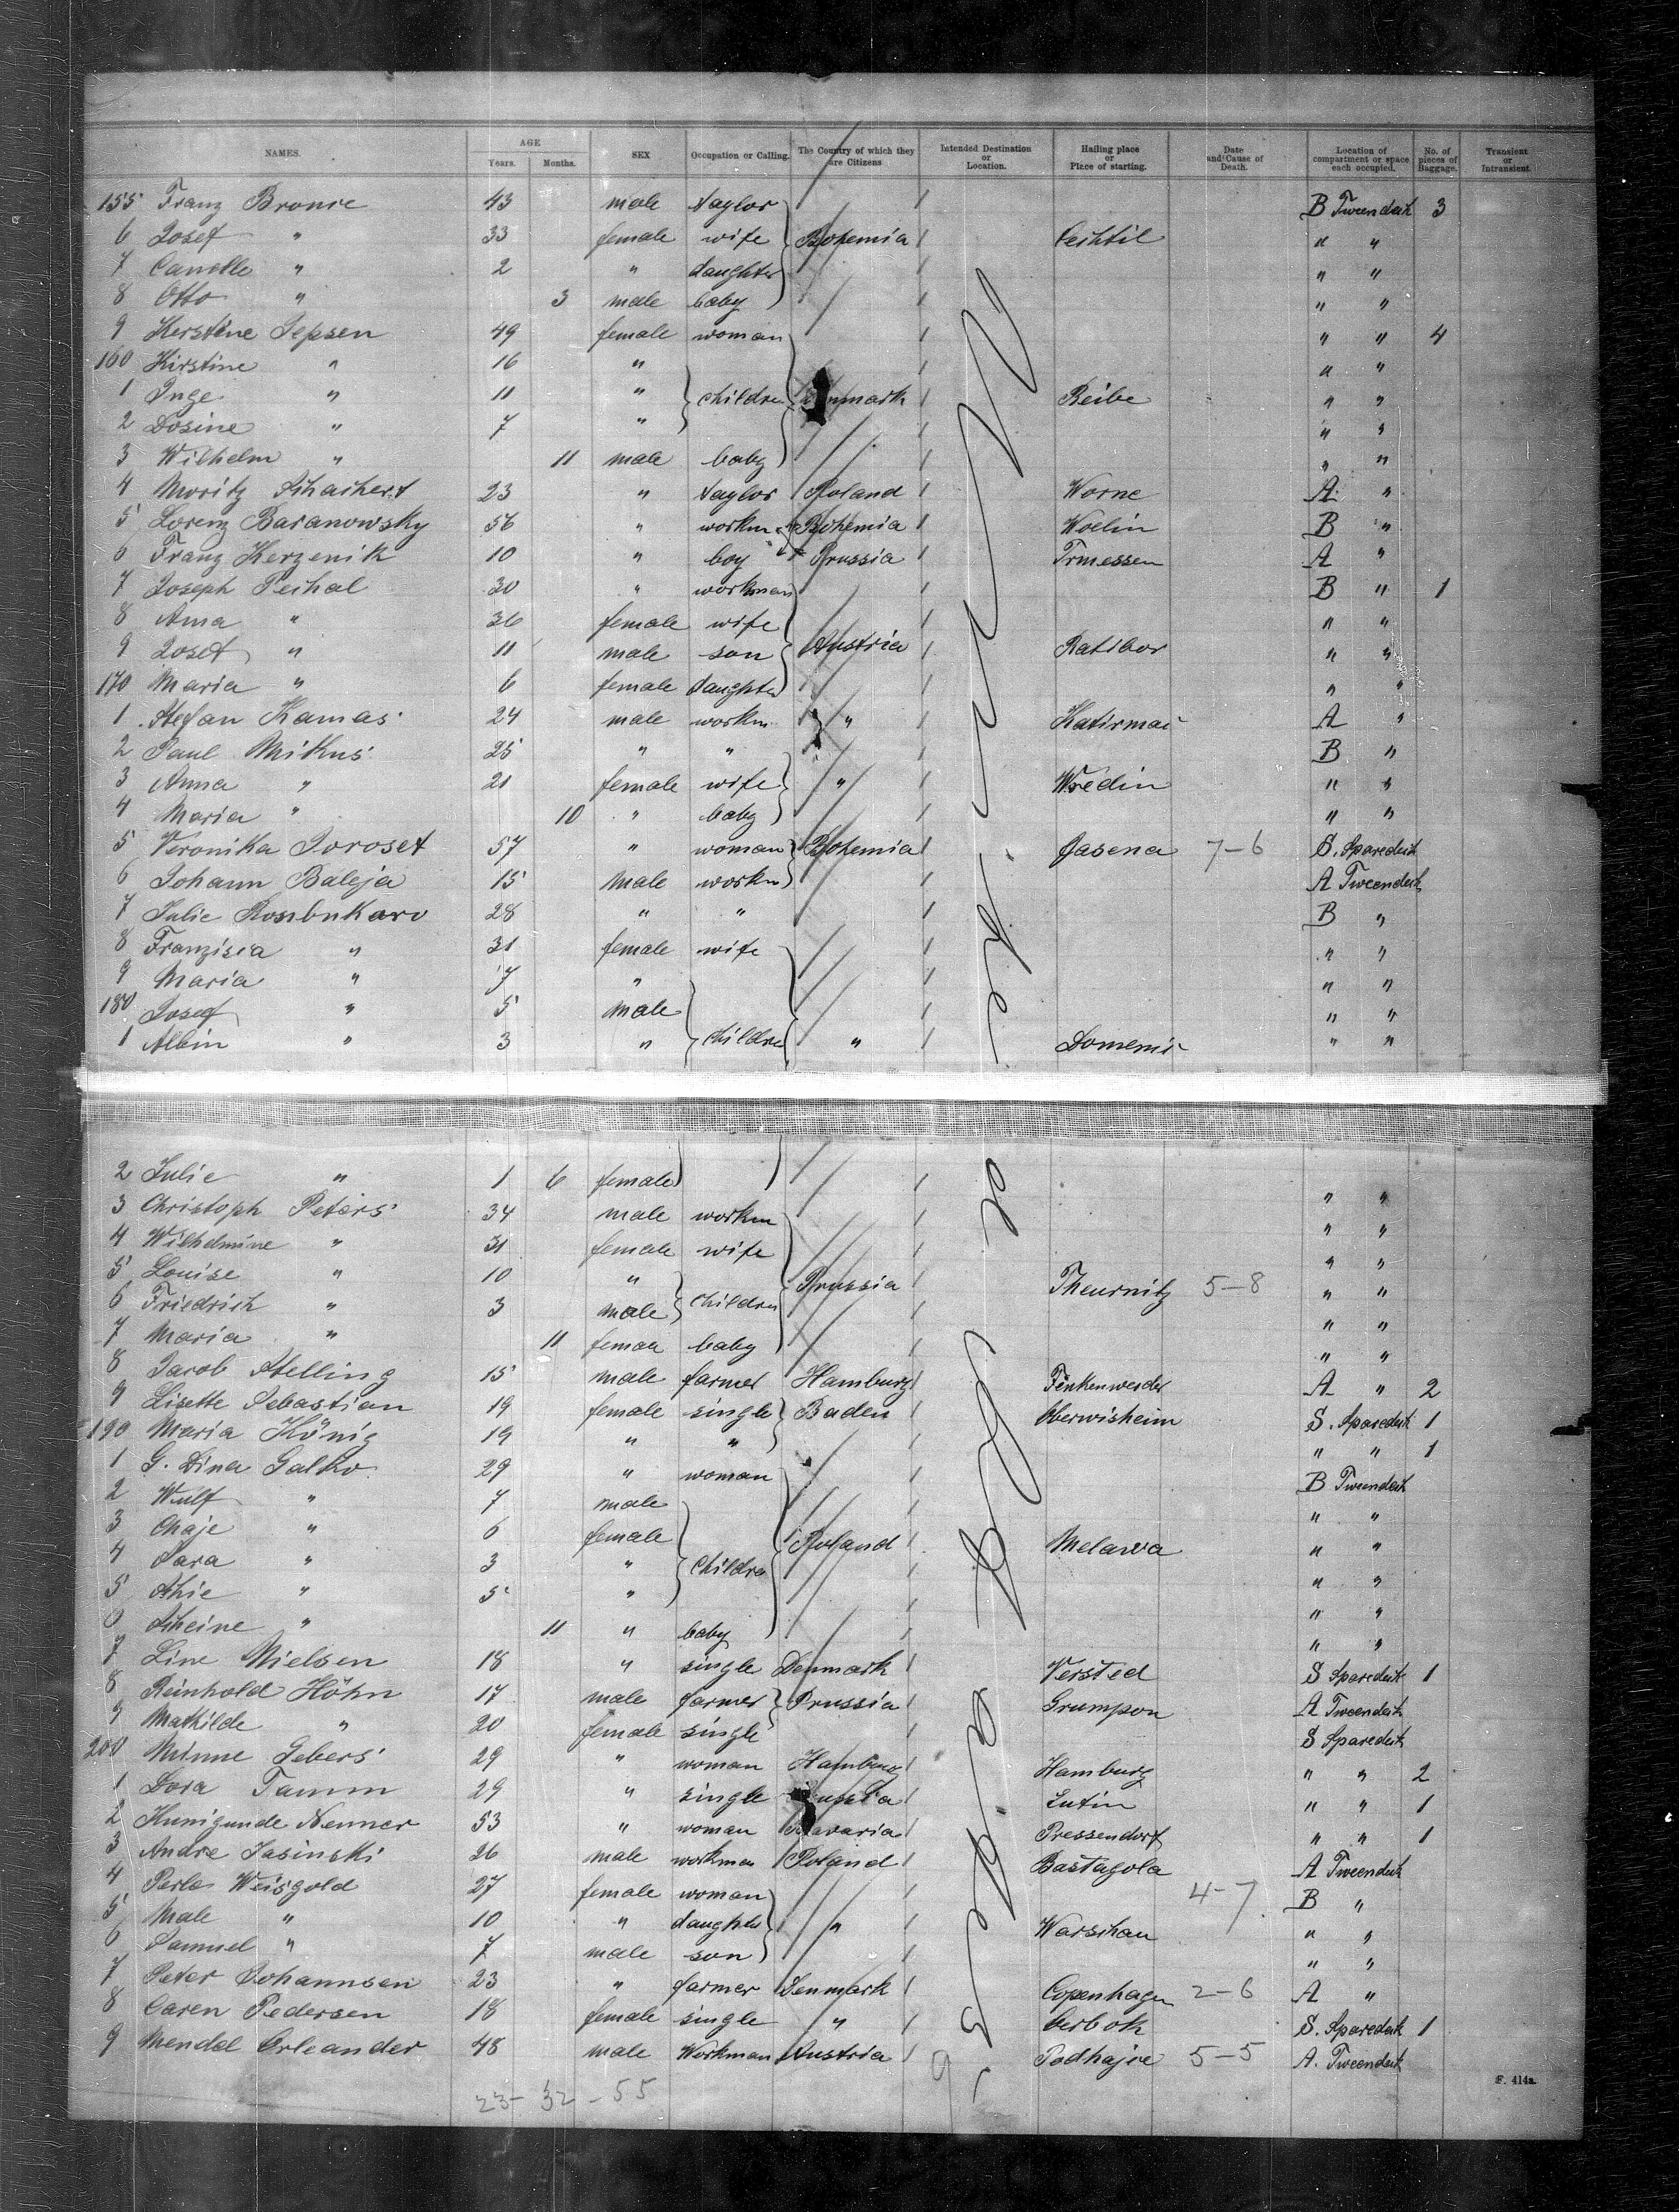 NAMES. AGE Years. Months. SEX Occupation or Calling. The Country of which they are Citizens Intended Destination or Location. Hailing place or Place of starting. Date and Cause of Death. Location of compartment or space each occupied. No. of pieces of Baggage. Transient or Intransient.
155 Franz 43 male taylor B Tweendeck 3
6 Josef " 33 female wife Bohemia " "
7 " 2 " daughter " "
8 Otto " 3 male baby " "
9 Kerstine Jepsen 49 female woman " " 4
160 Kirstine " 16 " " "
1 Inge " 11 " children Denmark Reibe " "
2 Dosine " 7 " " "
3 Wilhelm " 11 male baby " "
4 Moritz 23 " taylor Poland Worne A "
5 Lorenz Baranowsky 56 " workm Bohemia Woelin B "
6 Franz Kerzenik 10 " boy Prussia Trmessen A "
7 Joseph Peihal 30 " workman B " 1
8 Anna " 36 female wife " "
9 Josef " 11 male son Austria Ratibor " "
170 Maria " 6 female daughter " "
1 Stefan Kamas 24 male workm " A "
2 Paul Mikus 25 " " B "
3 Anna " 21 female wife " Wsedin " "
4 Maria " 10 " baby " "
5 Veronika 57 " woman Bohemia Jasena 7-6 S. Sparedeck
6 Johann Baleja 15 male workm A Tweendeck
7 Julie 28 " " B "
8 Franzisca " 31 female wife " "
9 Maria " 7 " " "
180 Josef " 5 male " "
1 Albin " 3 " children " " "
2 Julie " 1 6 female " "
3 Christoph Peters 34 male workm " "
4 Wilhelmine " 31 female wife " "
5 Louise " 10 " children Prussia Theurnitz 5-8 " "
6 Friedrich " 3 male " "
7 Maria " 11 female baby " "
8 Jacob Stelling 15 male farmer Hamburg Finkenwerder A " 2
9 Lisette Sebastian 19 female single Baden Oberwisheim S. Sparedeck 1
190 Maria König 19 " " " " 1
1 G. Dina Galko 29 " woman B Tweendeck
2 Wulf " 7 male " "
3 Chaje " 6 female Poland Melawa " "
4 Sara " 3 " children " "
5 " 5 " " "
6 Scheine " 11 " baby " "
7 Line Nielsen 18 " single Denmark Versted S Sparedeck 1
8 Reinhold Höhn 17 male farmer Prussia Grumpon A Tweendeck
9 Mathilde " 20 female single S Sparedeck
200 Minne Gebers 29 " woman Hamburg Hamburg " " 2
1 Dora Tamm 29 " single " " 1
2 Kunigunde Nenner 53 " woman Bavaria Pressendorf " " 1
3 Andre Jasinski 26 male workman Poland Bastagola A Tweendeck
4 Perla Weisgold 27 female woman 4-7 B "
5 Male " 10 " daughter " Warschau " "
6 Samuel " 7 male son " "
7 Peter Johannsen 23 " farmer Denmark Copenhagen 2-6 A "
8 Caren Pedersen 18 female single " S. Sparedeck 1
9 Mendel Orleander 48 male Workman Austria Podhajce 5-5 A. Tweendeck
23-32-55
F. 414a.